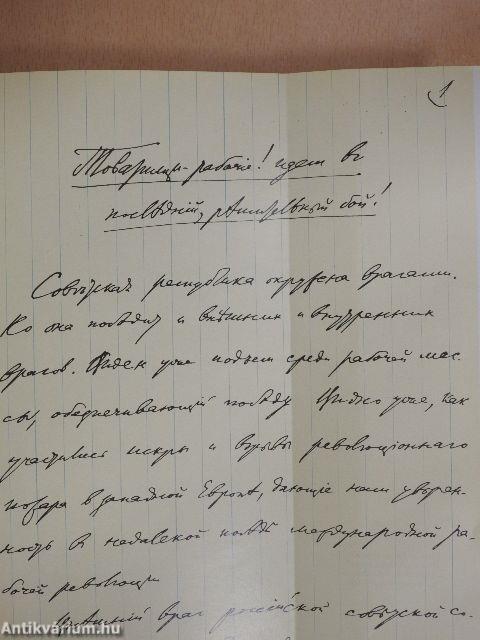 1
Товарищи-рабочіе! идем въ
послѣдній, рѣшительный бой!
Совѣтская республика окружена врагами.
Но она побѣдит и внѣшних и внутренних
врагов. Виден уже подъем среди рабочей мас-
сы, обезпечивающій побѣду. Видно уже, как
участились искры и взрывы революціоннаго
пожара в западной Европѣ, дающіе нам уверен-
ность в недалекой побѣдѣ международной ра-
бочей революціи.
Внѣшній враг россійской совѣтской со-
Antikvárium.hu